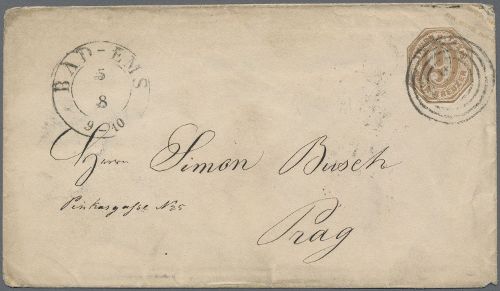 BAD-EMS
5
8
9 - 10
KREUZER
Herrn Simon Busch
Pinkasgasse N 25
Prag